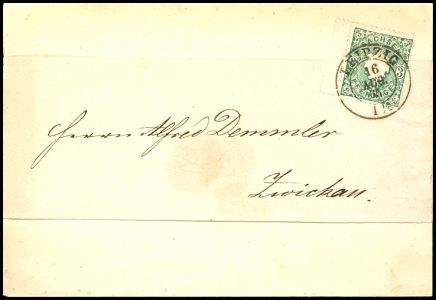 LEIPZIG
16
AUG.
Herrn Alfred Demmler
Zwickau.